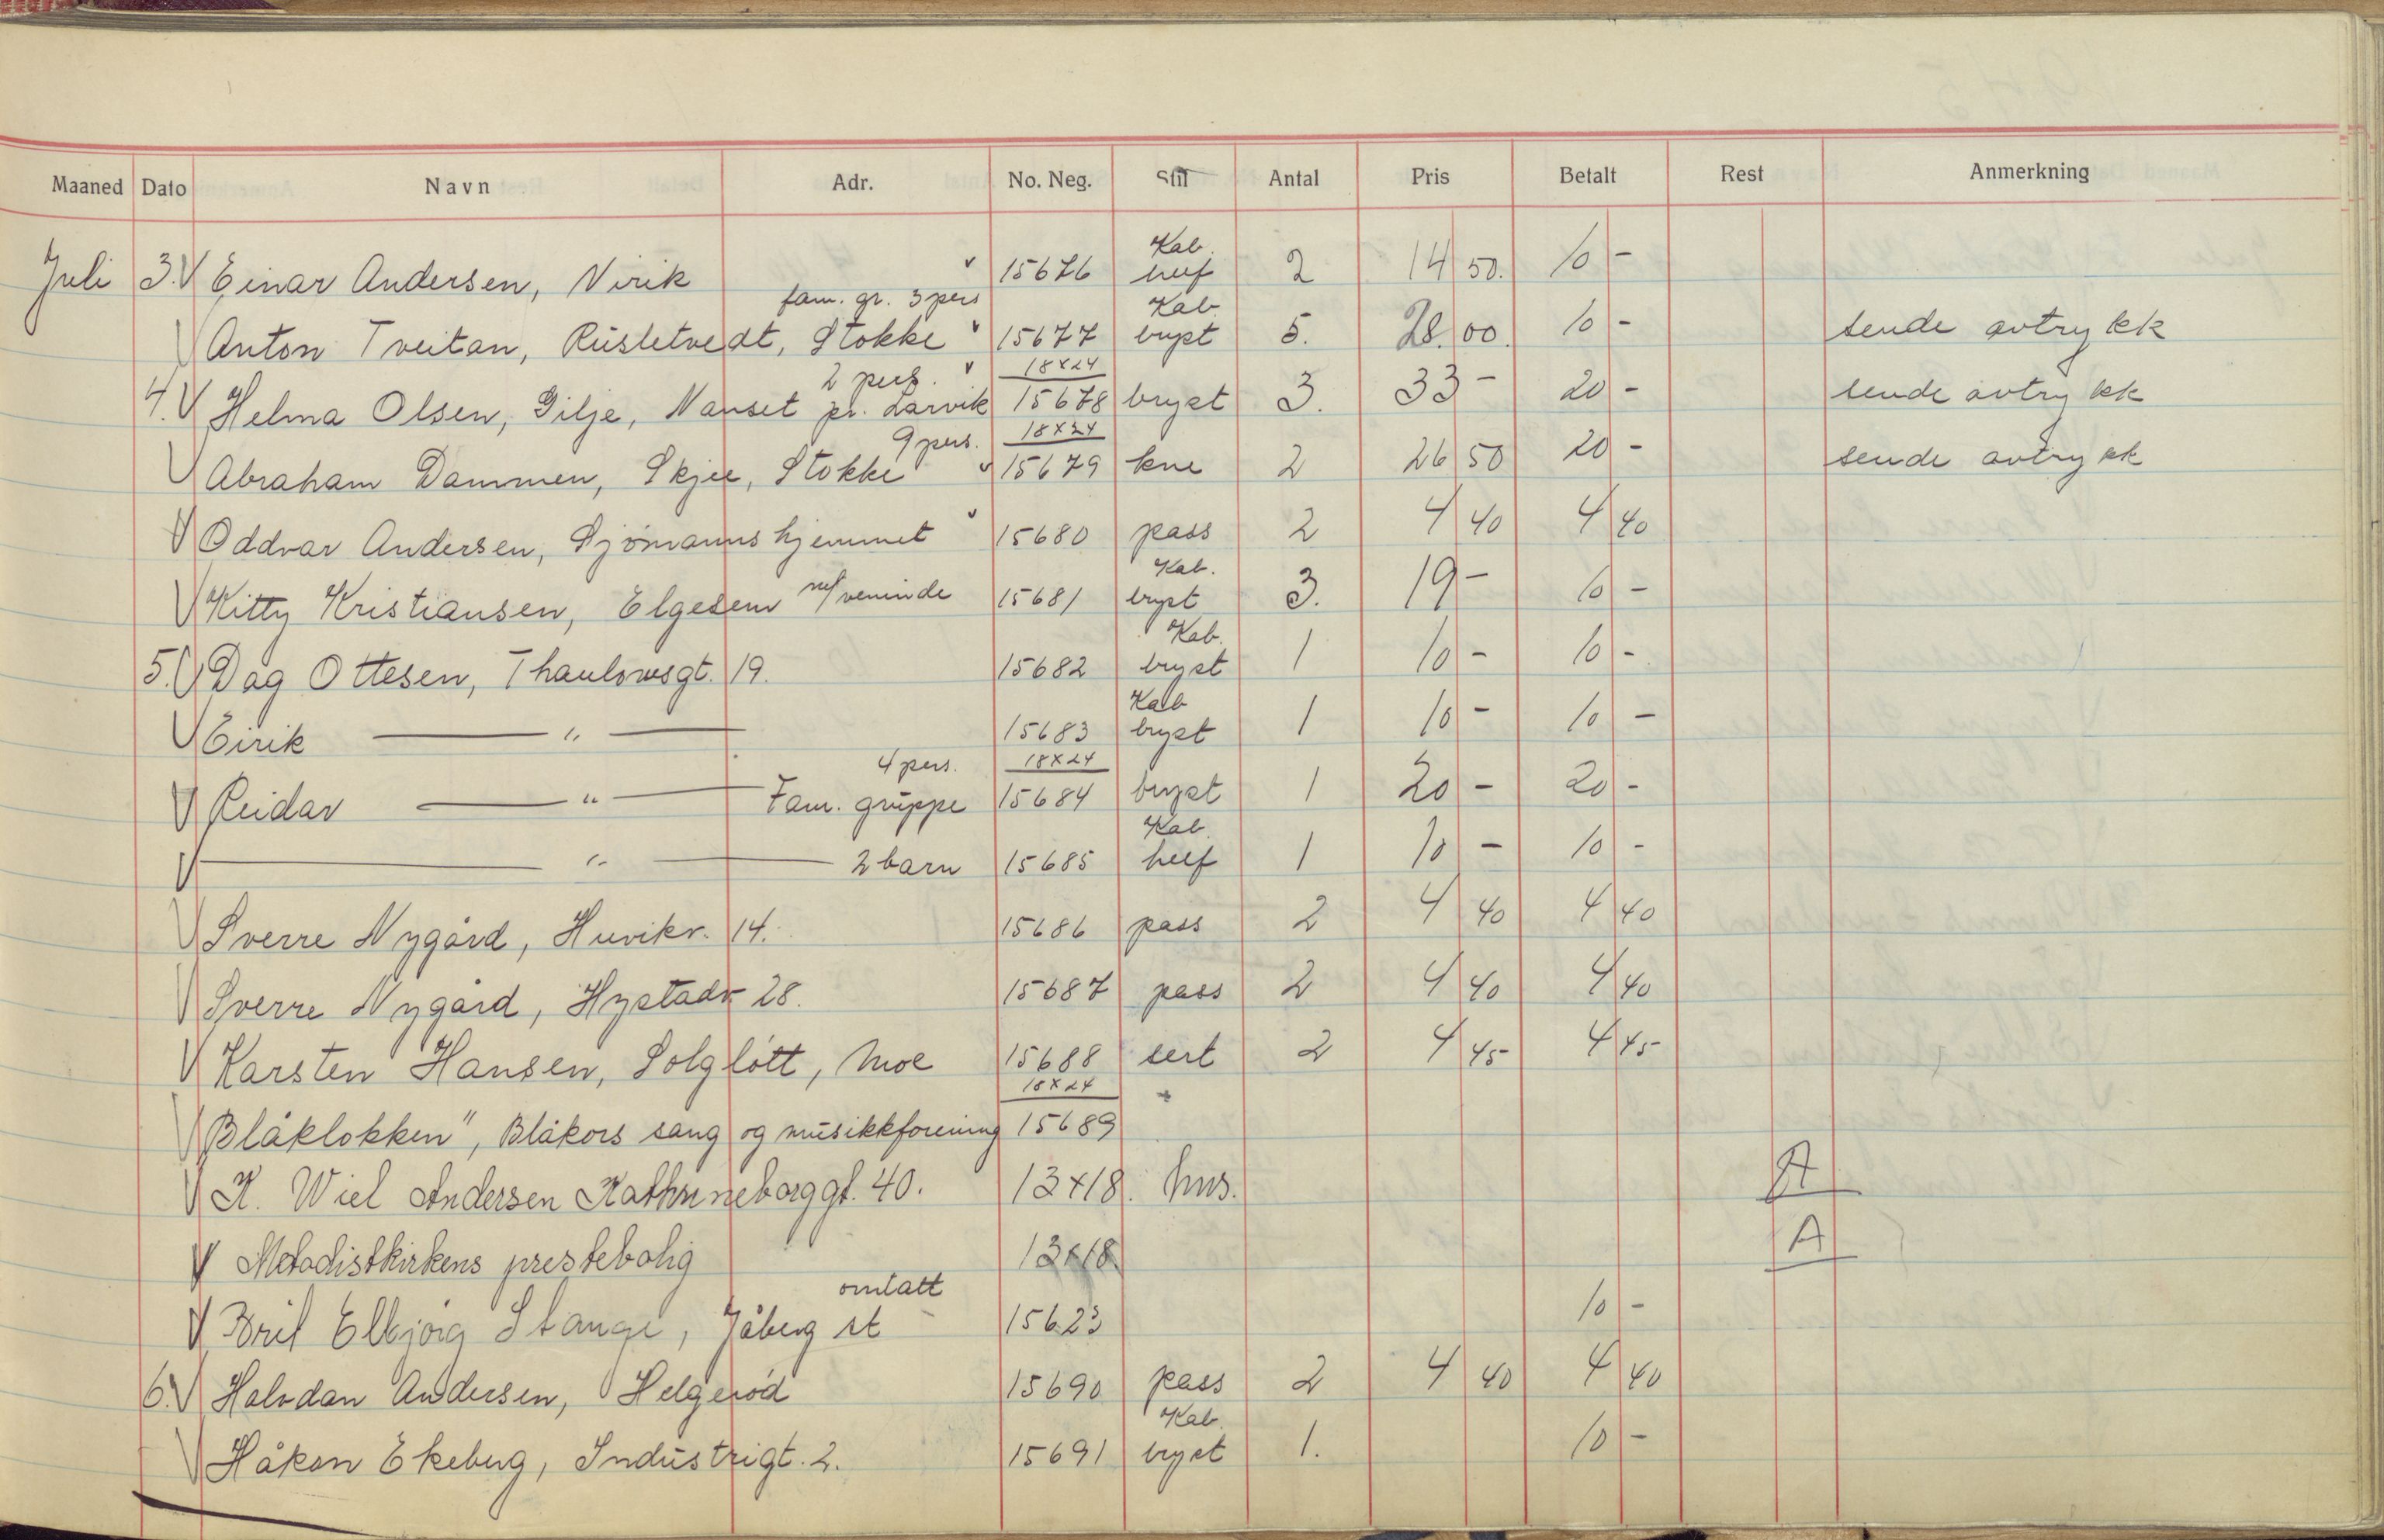 Maaned Dato Navn Adr. No. Neg. Stil Antal Pris Betalt Rest Anmerkning
Juli 3. V Einar Andersen, Virik " 15676 Kab. helf 2 14 50. 10 -
V Anton Tveitan, Rustetvedt, Stokke fam. gr. 3 pers " 15677 Kab. bryst 5. 28. 00. 10 - sende avtrykk
4. V Helma Olsen, Gilje, Nanset pr. Larvik 2 pers. " 18x24 15678 bryst 3. 33 - 20 - sende avtrykk
V Abraham Dammen, Skjee, Stokke 9 pers. " 18x24 15679 kne 2 26 50 20 - sende avtrykk
V Oddvar Andersen, Sjömannshjemmet " 15680 pass 2 4 40 4 40
V Kitty Kristiansen, Elgesem m/veninde 15681 Kab. bryst 3. 19 - 10 -
5. V Dag Ottesen, Thaulowsgt. 19. 15682 Kab. bryst 1 10 - 10 -
V Eirik — " — 15683 Kab bryst 1 10 - 10 -
V Reidar — " — 4 pers. Fam. gruppe 18x24 15684 bryst 1 20 - 20 -
V — " — 2 barn 15685 Kab. helf 1 10 - 10 -
V Sverre Nygård, Huvikv. 14. 15686 pass 2 4 40 4 40
V Sverre Nygård, Hystadv 28. 15687 pass 2 4 40 4 40
V Karsten Hansen, Solglött, Moe 15688 sert 2 4 45 4 45
V Blåklokken", Blåkors sang og musikkforening 18x24 15689
V K. Wiel Andersen Kathrineborggt. 40. 13x18. hus. A
V Metodistkirkens prestebolig 13x18 A
V Bril Elbjörg Stange, Jåberg st omtatt 15623 10 -
6. V Halvdan Andersen, Helgeröd 15690 pass 2 4 40 4 40
V Håkon Ekeberg, Industrigt. 2. 15691 Kab. bryst 1. 10 -